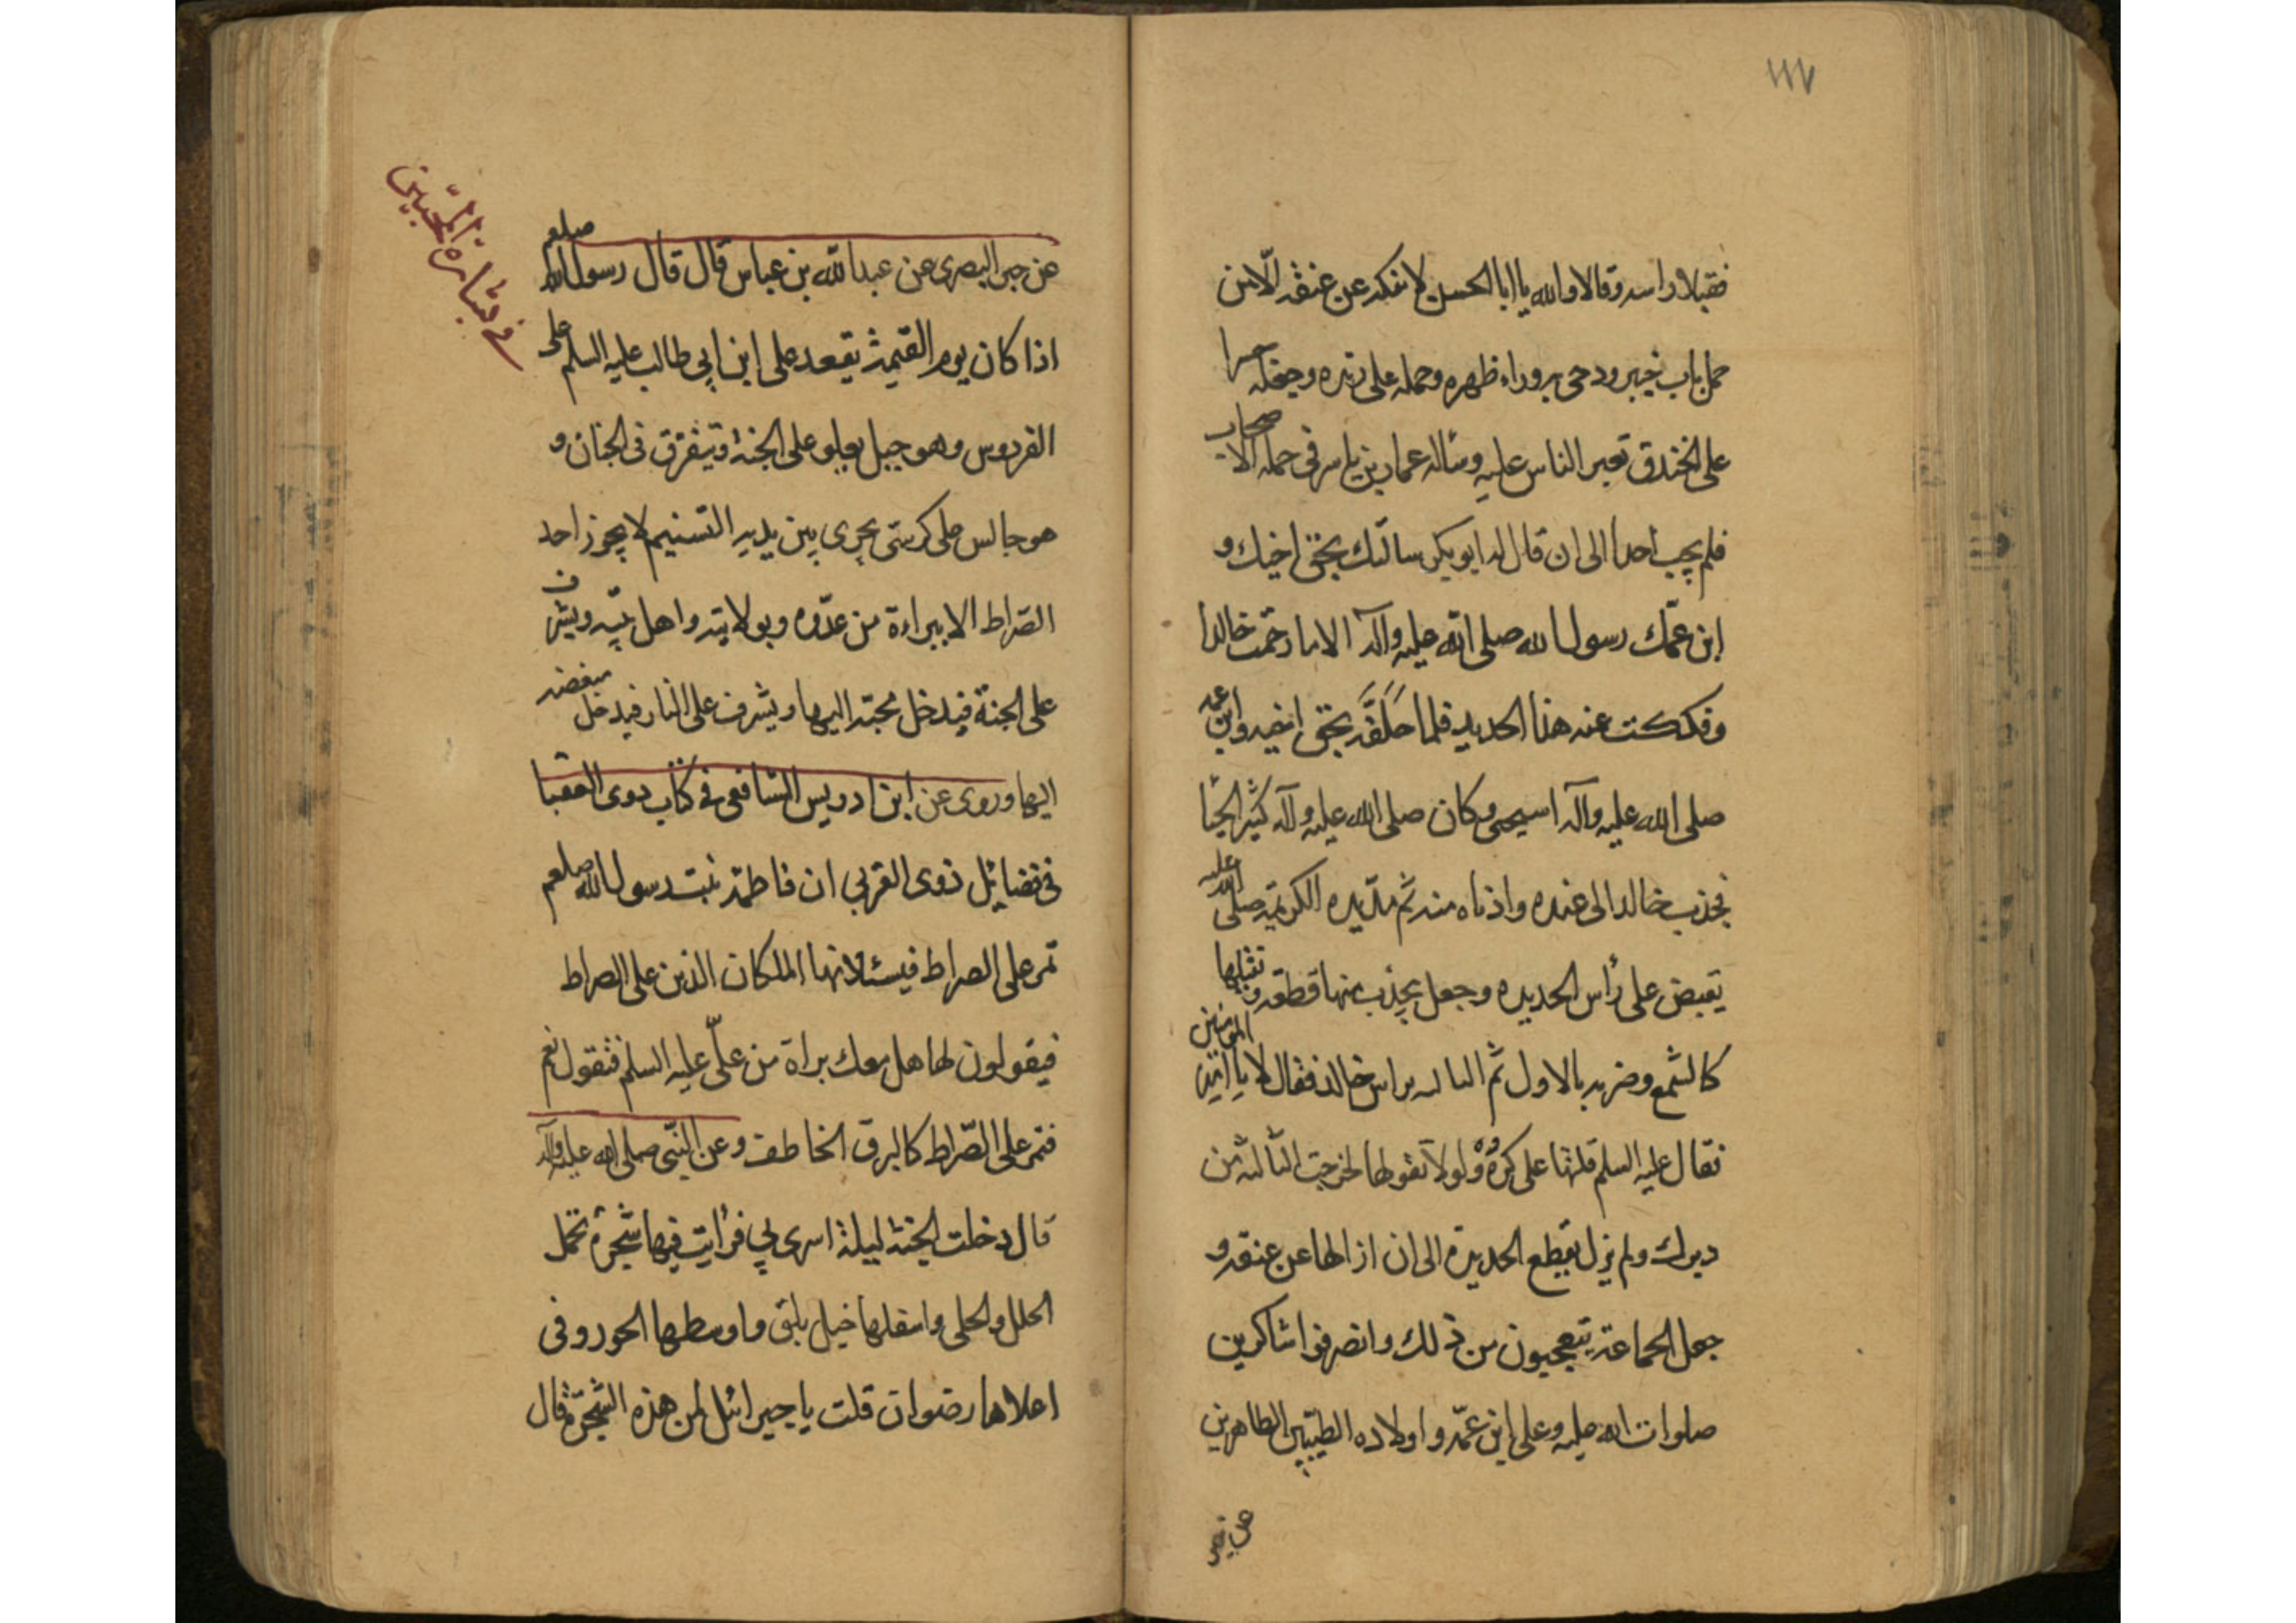 ١١٧
فقبلا راسه وقالا والله يا ابا الحسن لا يفكه عن عنقه الّا من
حمل باب خيبر ودحى به وراء ظهره وحمله على زنده وجعله جسرا
على الخندق تعبر الناس عليه وسأله عمار بن ياسر في جملة الاصحاب
فلم يجب احدا الى ان قال له ابو بكر سالتك بحق اخيك و
ابن عمّك رسول الله صلى الله عليه وآله الا ما رحمت خالدا
وفككت عنه هذا الحديد فلما حَلَفَّه بحق اخيه وابن عمه
صلى الله عليه وآله استحيى وكان صلى الله عليه وآله كثير الحيا
فجذب خالد الى عنده واذناه منه ثم مدّ يده الكريمة صلى الله عليه
يقبض على رأس الحديده وجعل يجذب منها قطعة و يفتلها
كالشمع وضربه بالاول ثم الثاله براس خالد فقال لا يا امير المومنين
فقال عليه السلم قلتها على كُرْهٍ ولولا تقولها لخرجت الثالثه من
دبرك ولم يزل يقطع الحديدة الى ان ازالها عن عنقه و
جعل الجماعة يتعجبون من ذلك وانصرفوا شاكرين
صلوات الله عليه وعلى ابن عمّه واولاده الطيّبين الطاهرين
في بشارة المحبّين
عن جبر البصرى عن عبد الله بن عباس قال قال رسول الله صلعم
اذا كان يوم القيمة يقعد على ابن ابى طالب عليه السلم على
الفردوس وهو جبل يعلو على الجنة ويتفرق فى الجنان و
هو جالس على كرسّى يجرى بين يديه التسنيم لا يجوز احد
الصّراط الا ببراءة من عدّوه وبولايته واهل بيته ويشرف
على الجنة فيدخل محبته اليها ويشرف على النار فيدخل مبغضه
اليها وروى عن ابن ادريس الشافعى فى كتاب دوى العقبا
فى فضايل ذوى القربى ان فاطمة بنت رسول الله صلعم
تمر على الصراط فيسئلانها الملكان الذين على الصراط
فيقولون لها هل معك براة من علّى عليه السلم فتقول نعم
فتمر على الصّراط كالبرق الخاطف وعن النبّى صلى الله عليه وآله
قال دخلت الجنة ليلة اسرى بي فرأيت فيها شجرة تحمل
الحلل والحلى واسفلها خيل بلق واوسطها الحور وفى
اعلاها رضوان قلت يا جبرائيل لمن هذه الشجرة قال